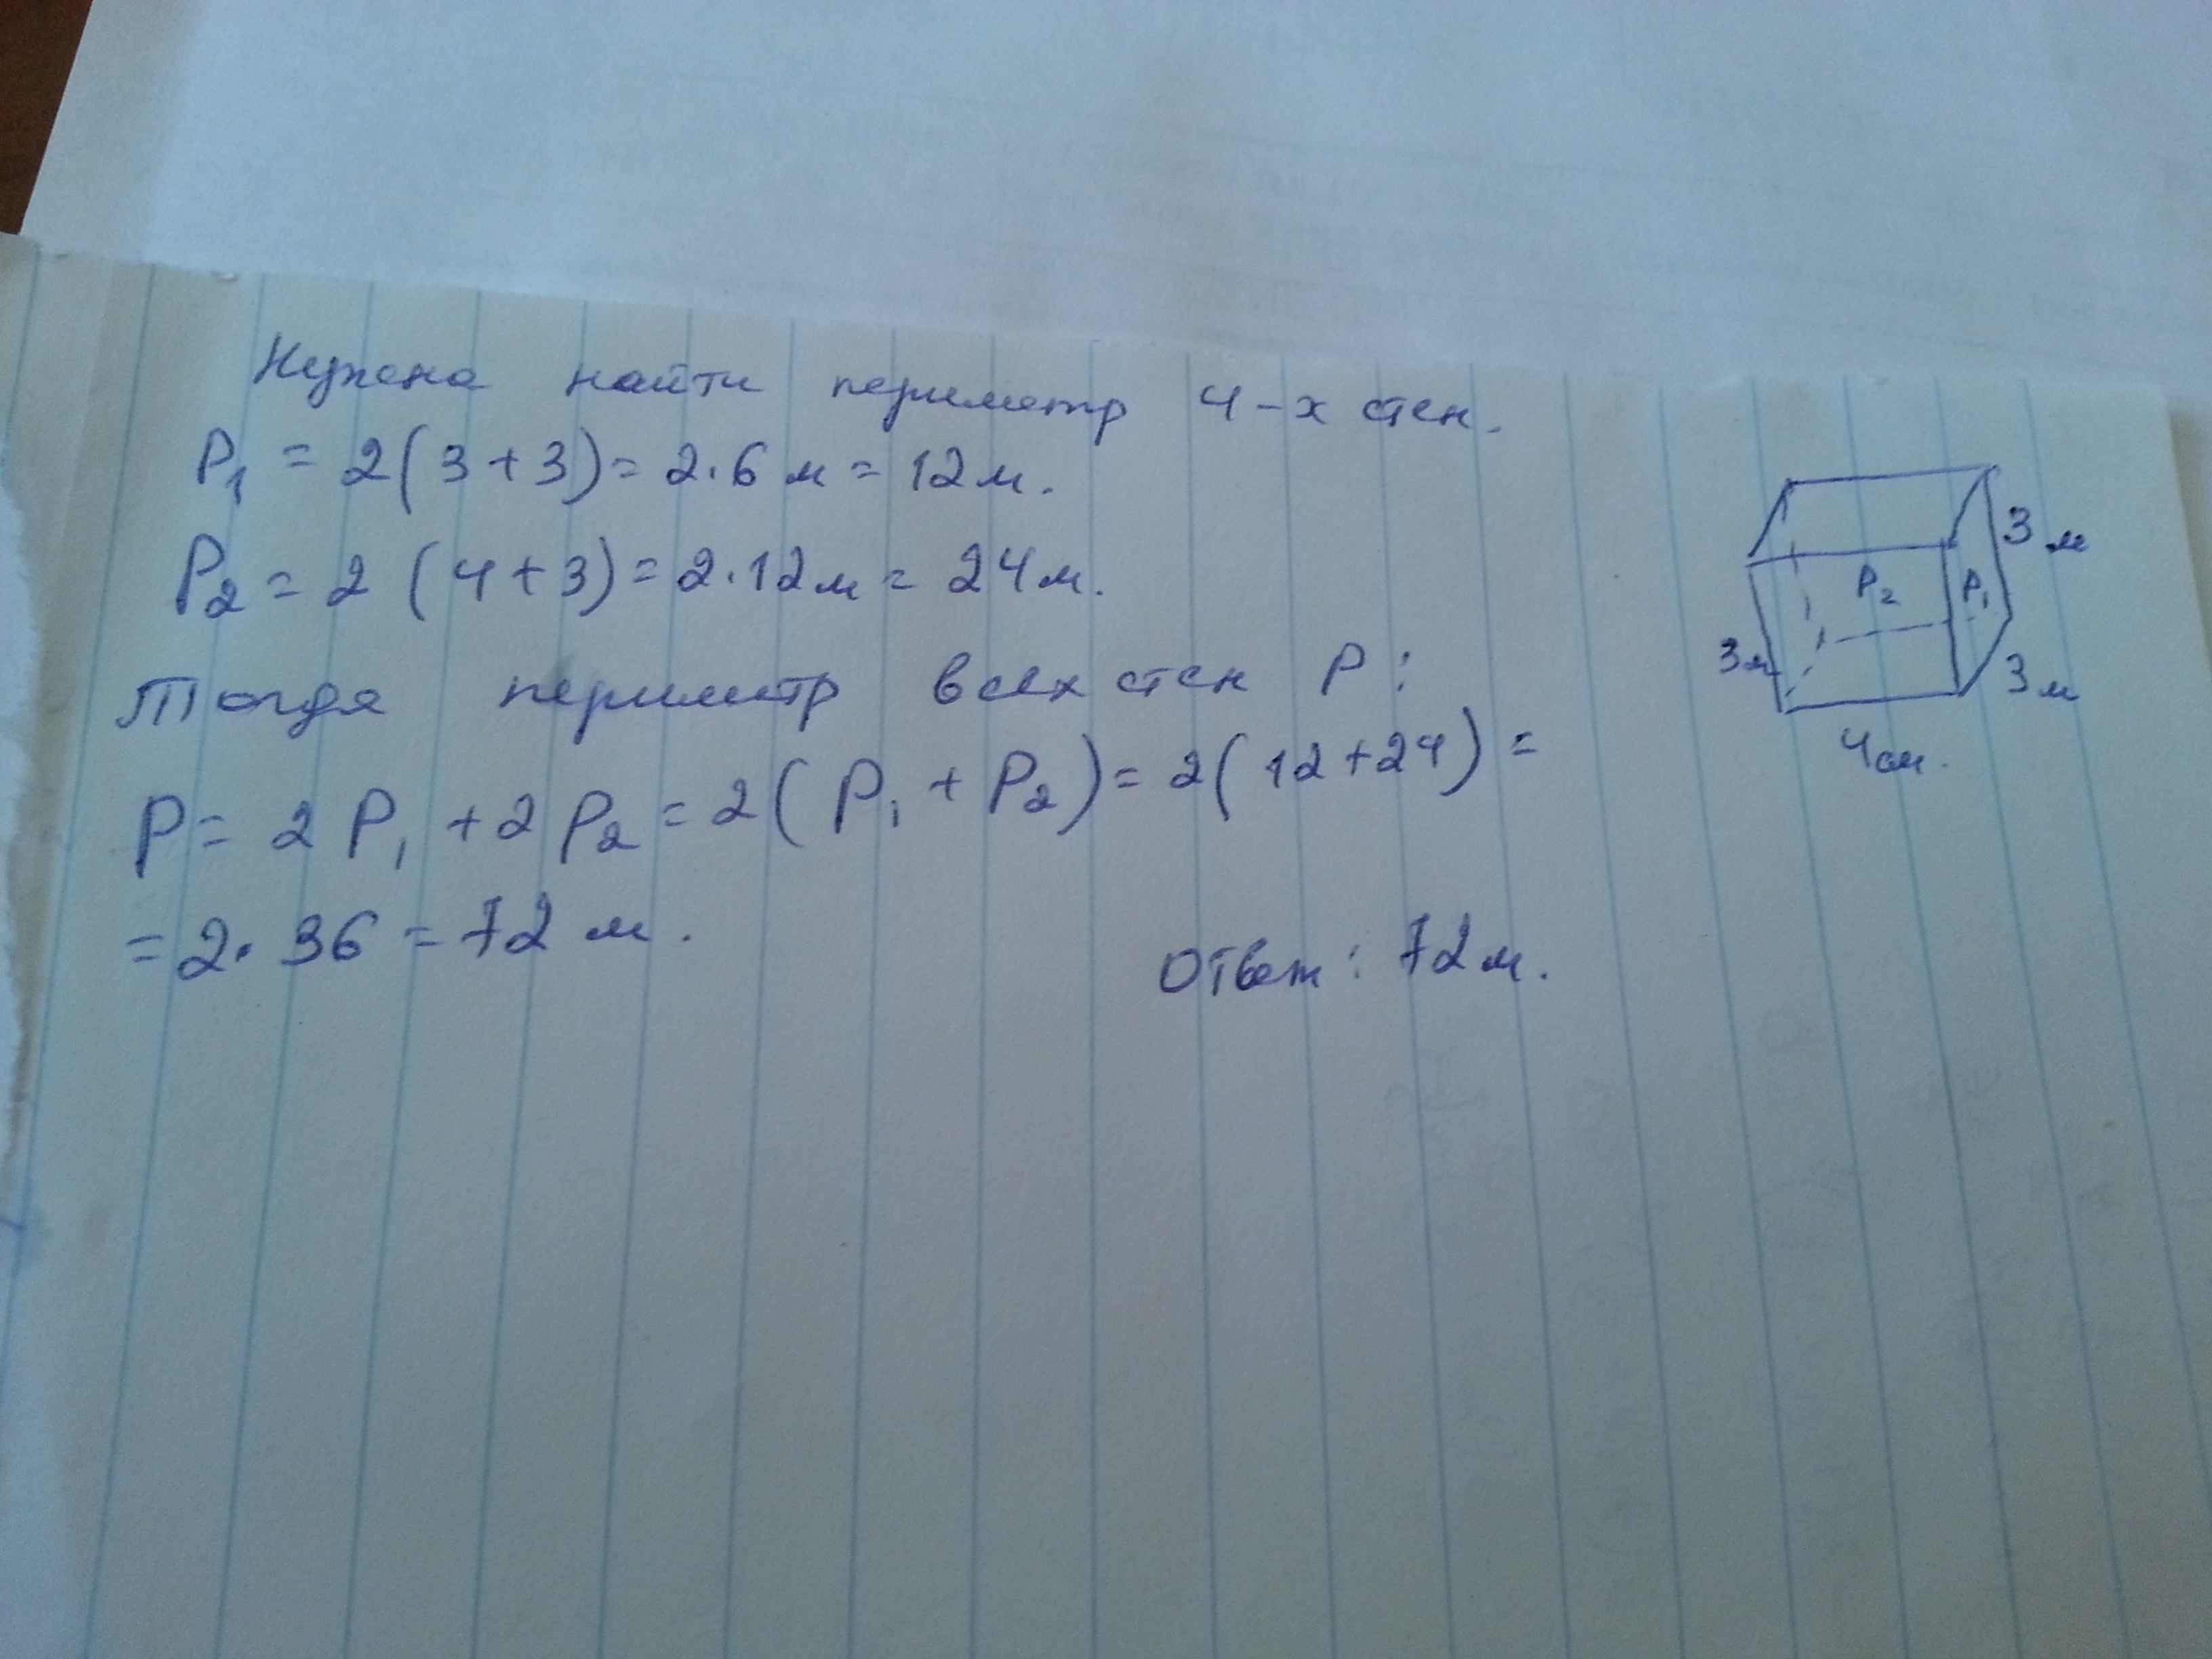 Нужено найти периметр 4-х стен.
P₁ = 2(3+3)= 2·6 м = 12 м.
P₂ = 2 (4+3)= 2·12 м = 24 м.
Тогда периметр всех стен P:
P = 2P₁ + 2P₂ = 2(P₁ + P₂) = 2(12+24) =
= 2·36 = 72 м.
Ответ: 72 м.
3 м
P₂ P₁
3 м
3 м
4 см.